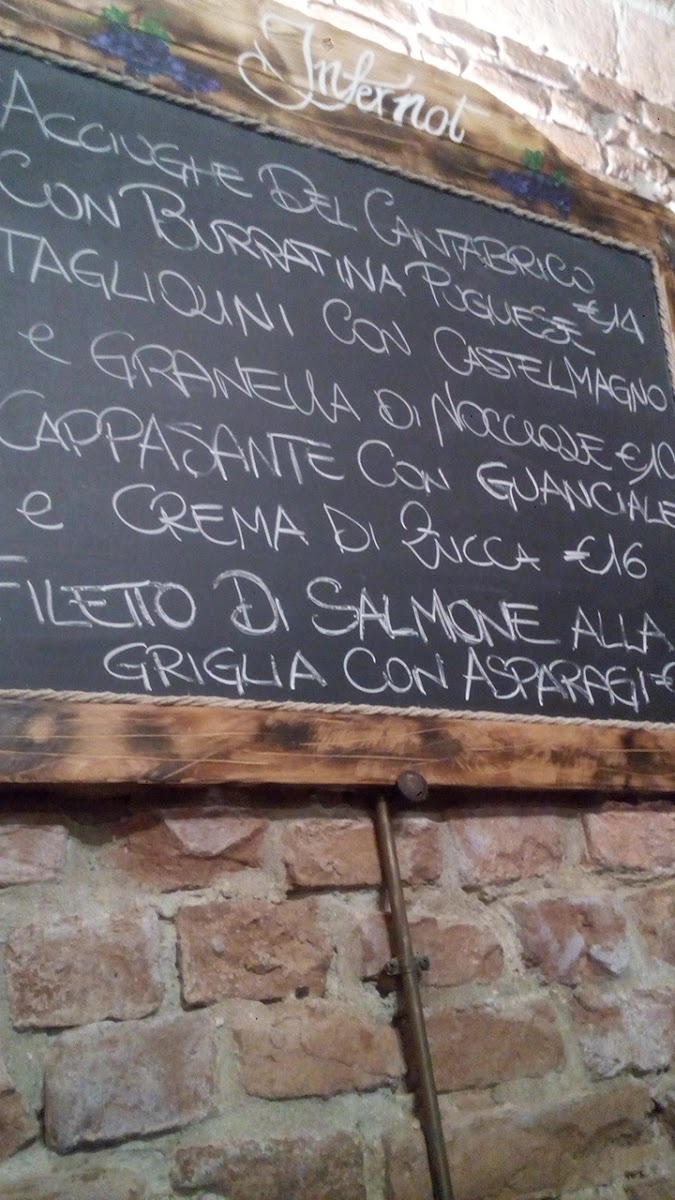 Infernot
ACCIUGHE DEL CANTABRICO
CON BURRATINA PUGLIESE €14
TAGLIOLINI CON CASTELMAGNO
e GRANELLA DI NOCCIOLE €10
CAPPASANTE CON GUANCIALE
e CREMA DI ZUCCA €16
FILETTO DI SALMONE ALLA
GRIGLIA CON ASPARAGI €